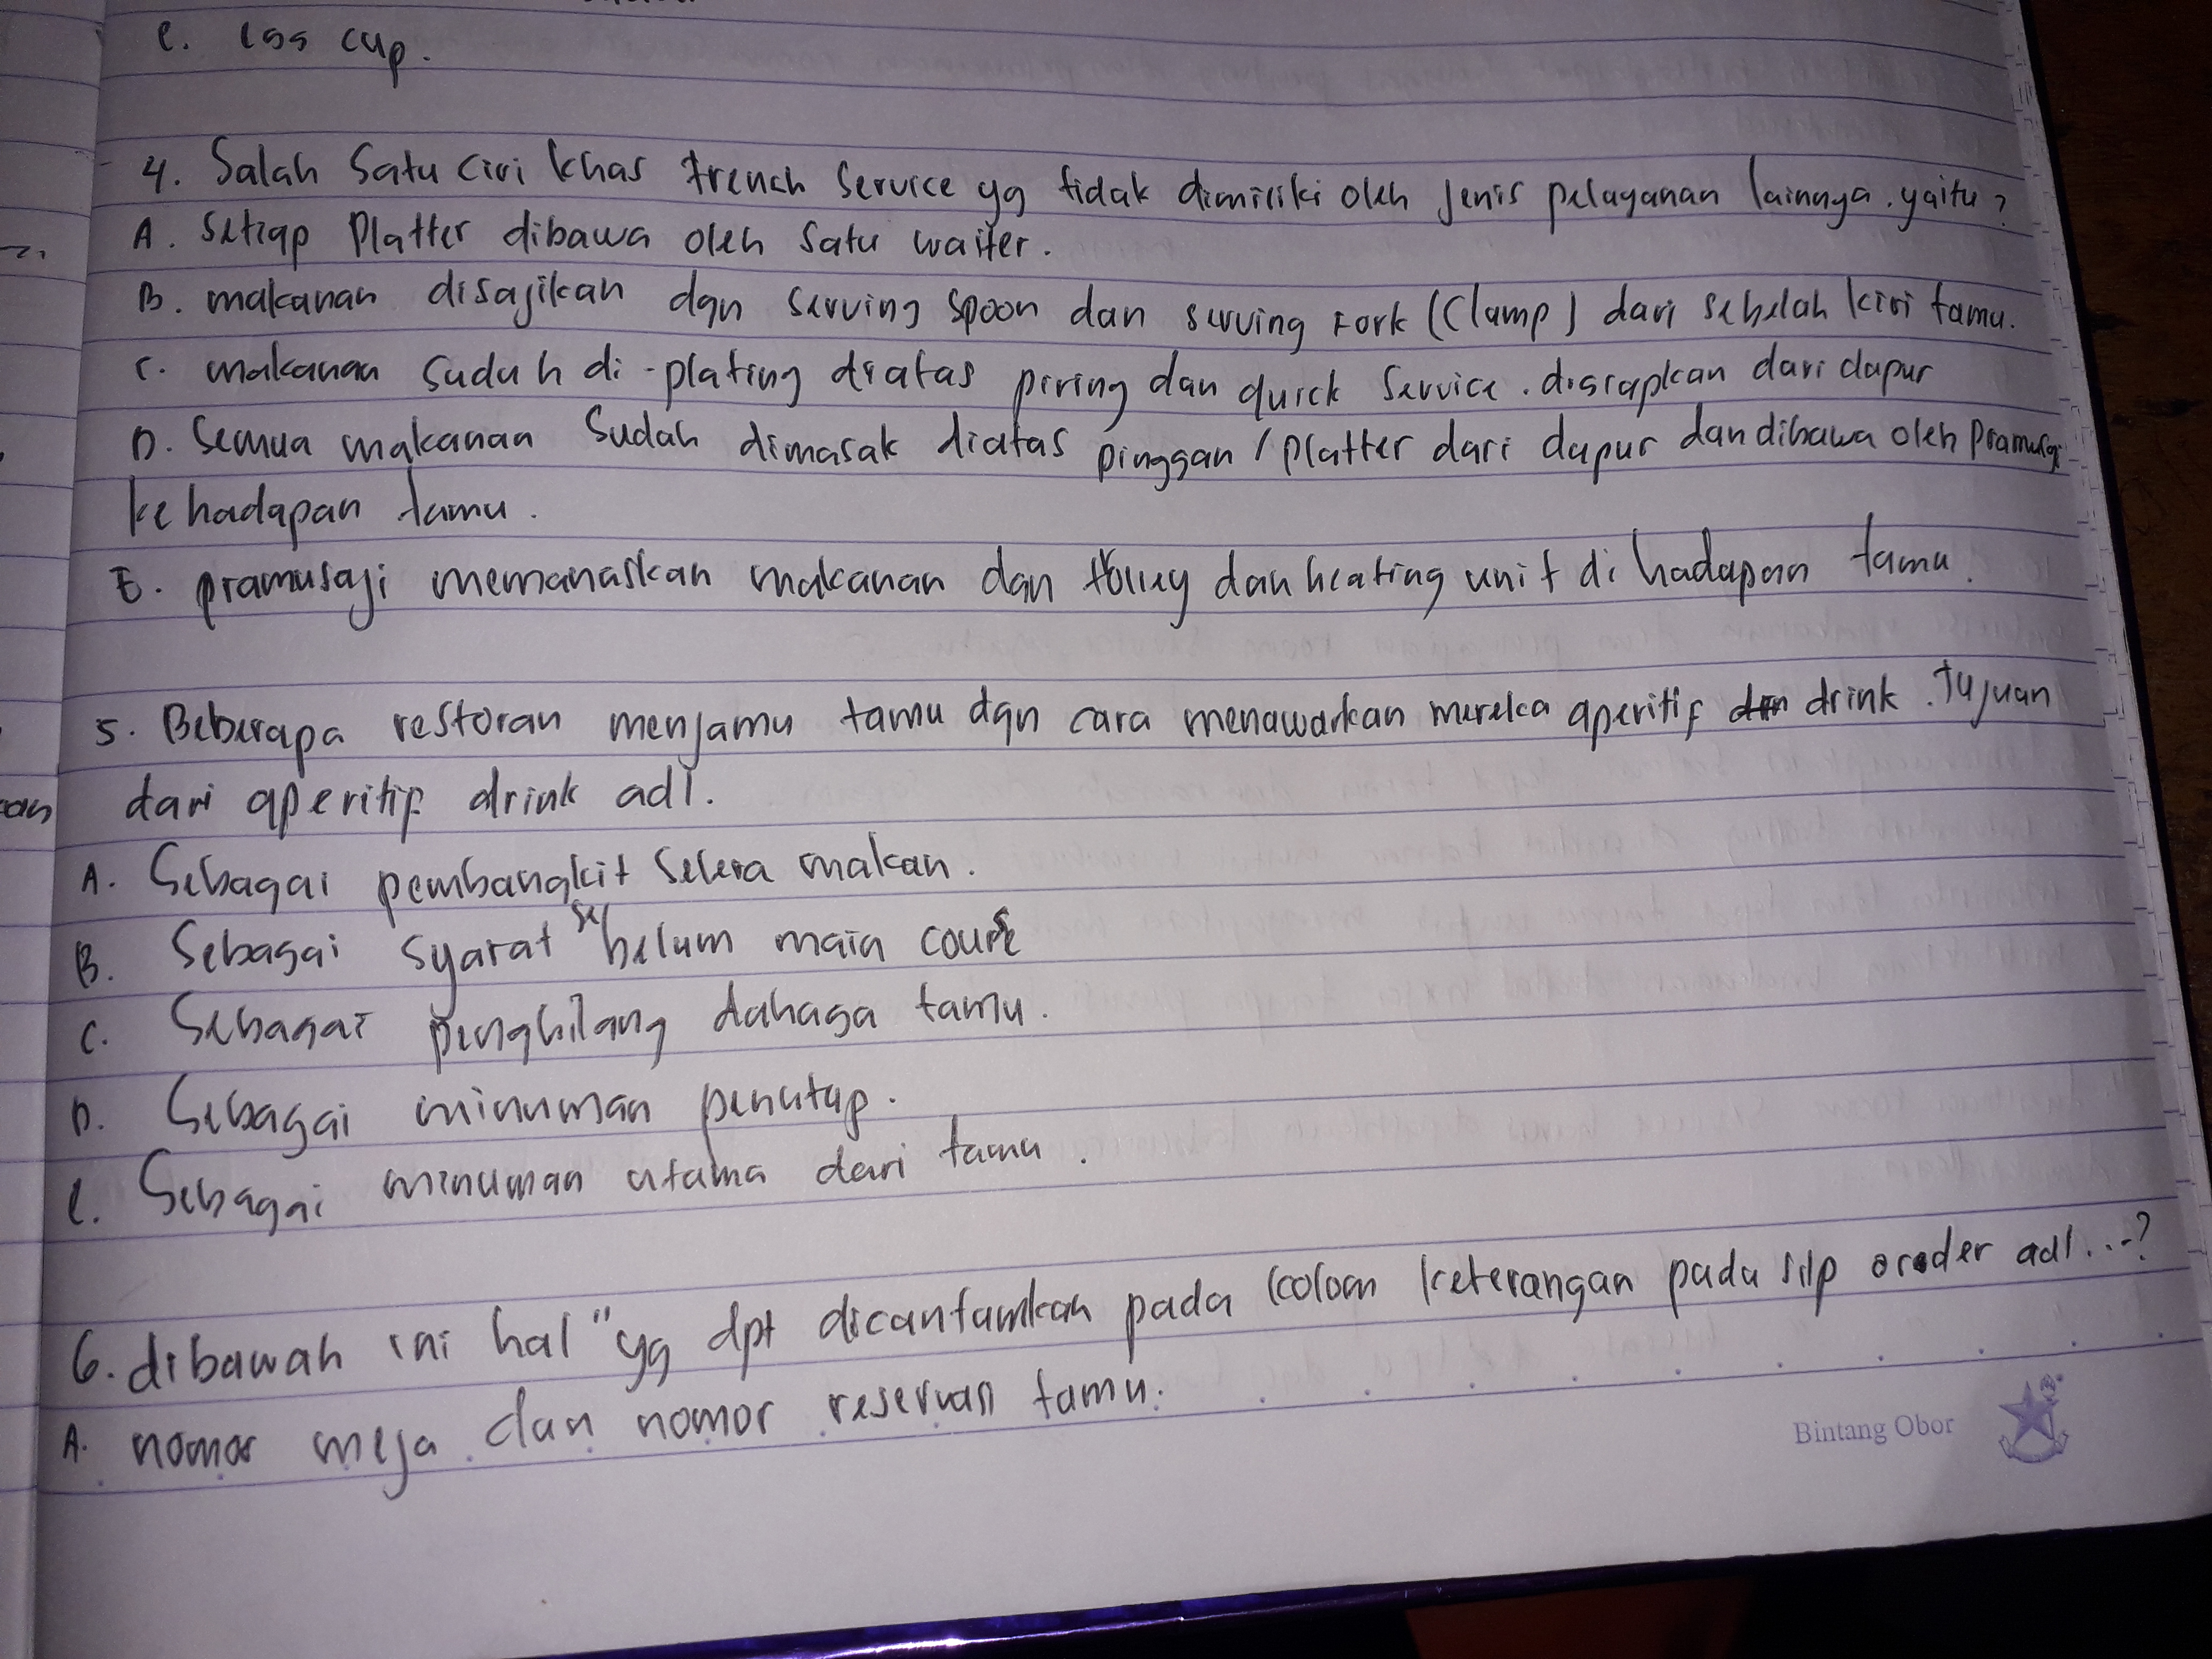 e. egg cup.
4. Salah satu ciri khas french service yg tidak dimiliki oleh jenis pelayanan lainnya. yaitu?
A. Setiap Platter dibawa oleh satu waiter.
B. makanan disajikan dgn serving spoon dan serving Fork (Clamp) dari sebelah kiri tamu.
C. makanan sudah di-plating diatas piring dan quick service. disiapkan dari dapur
D. Semua makanan sudah dimasak diatas pinggan / Platter dari dapur dan dibawa oleh Pramusaji
ke hadapan tamu.
E. pramusaji memanaskan makanan dgn trolley dan heating unit di hadapan tamu.
5. Beberapa restoran menjamu tamu dgn cara menawarkan mereka aperitif drink. Tujuan
dari aperitif drink adl.
can
A. Sebagai pembangkit selera makan.
B. Sebagai syarat sebelum main course
C. Sebagai penghilang dahaga tamu.
D. Sebagai minuman penutup.
e. Sebagai minuman utama dari tamu.
6. dibawah ini hal" yg dpt dicantumkan pada kolom keterangan pada slip oroder adl...-?
A. nomor meja dan nomor reservasi tamu.
Bintang Obor